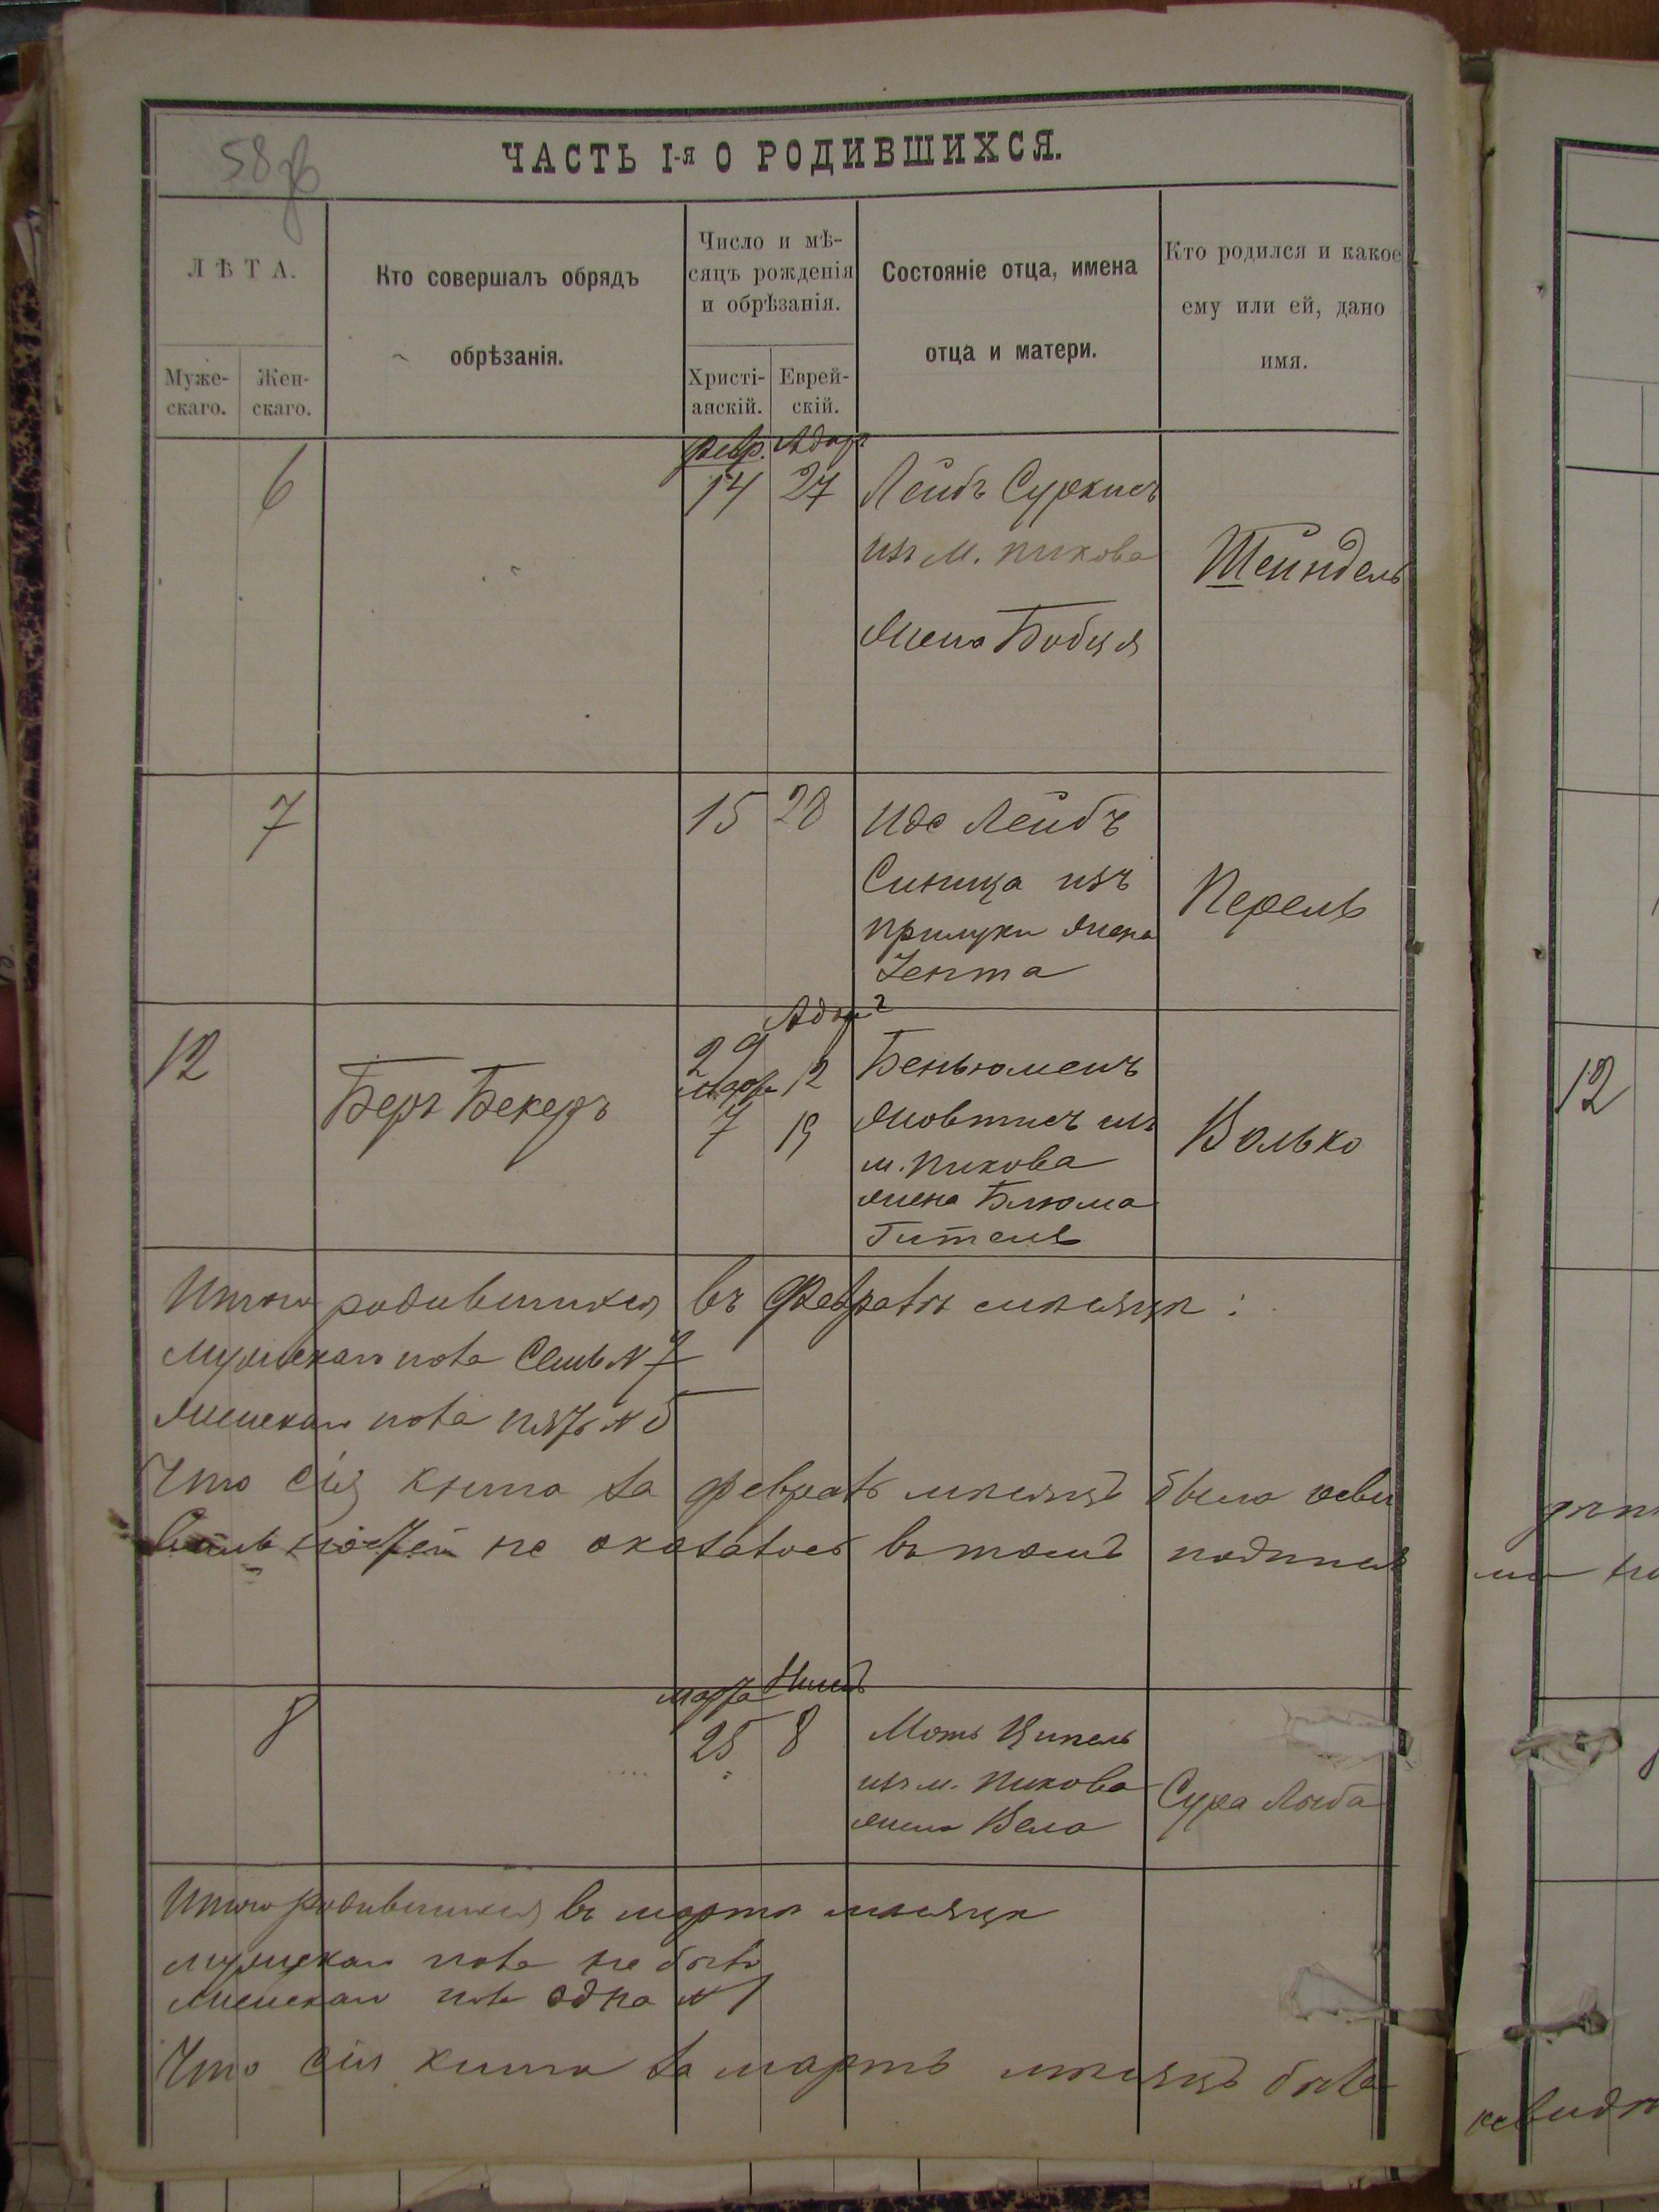 58 об
ЧАСТЬ I-я О РОДИВШИХСЯ.
ЛѢТА.
Муже-
скаго.
Жен-
скаго.
Кто совершалъ обрядъ
обрѣзанія.
Число и мѣ-
сяцъ рожденія
и обрѣзанія.
Христі-
анскій.
Еврей-
скій.
Состояніе отца, имена
отца и матери.
Кто родился и какое
ему или ей, дано
имя.
Февр. Адар
6
14
27
Лейбъ Суркисъ
изъ м. Пикова
жена Бобця
Шейндель
7
15
28
Идс Лейбъ
Синица изъ
Прилуки жена
Зента
Перель
Адар 2
12
Беръ Бекеръ
29
12
Марта
7
19
Беньюменъ
Жовтисъ изъ
м. Пикова
жена Блюма
Гитель
Волько
Итого родившихся въ Февралѣ мѣсяцѣ:
Мужскаго пола Семь N 7
Женскаго пола пять N 5
Что сія книга за февраль мѣсяцъ была
не оказалось въ томъ подпись
марта Нисонъ
8
25
8
Мошь Ципель
изъ м. Пикова
жена Вела
Сура Лыба
Итого родившихся въ мартѣ мѣсяцѣ
мужскаго пола не было
женскаго пола одна N 1
Что сія книга за мартъ мѣсяцъ была
12